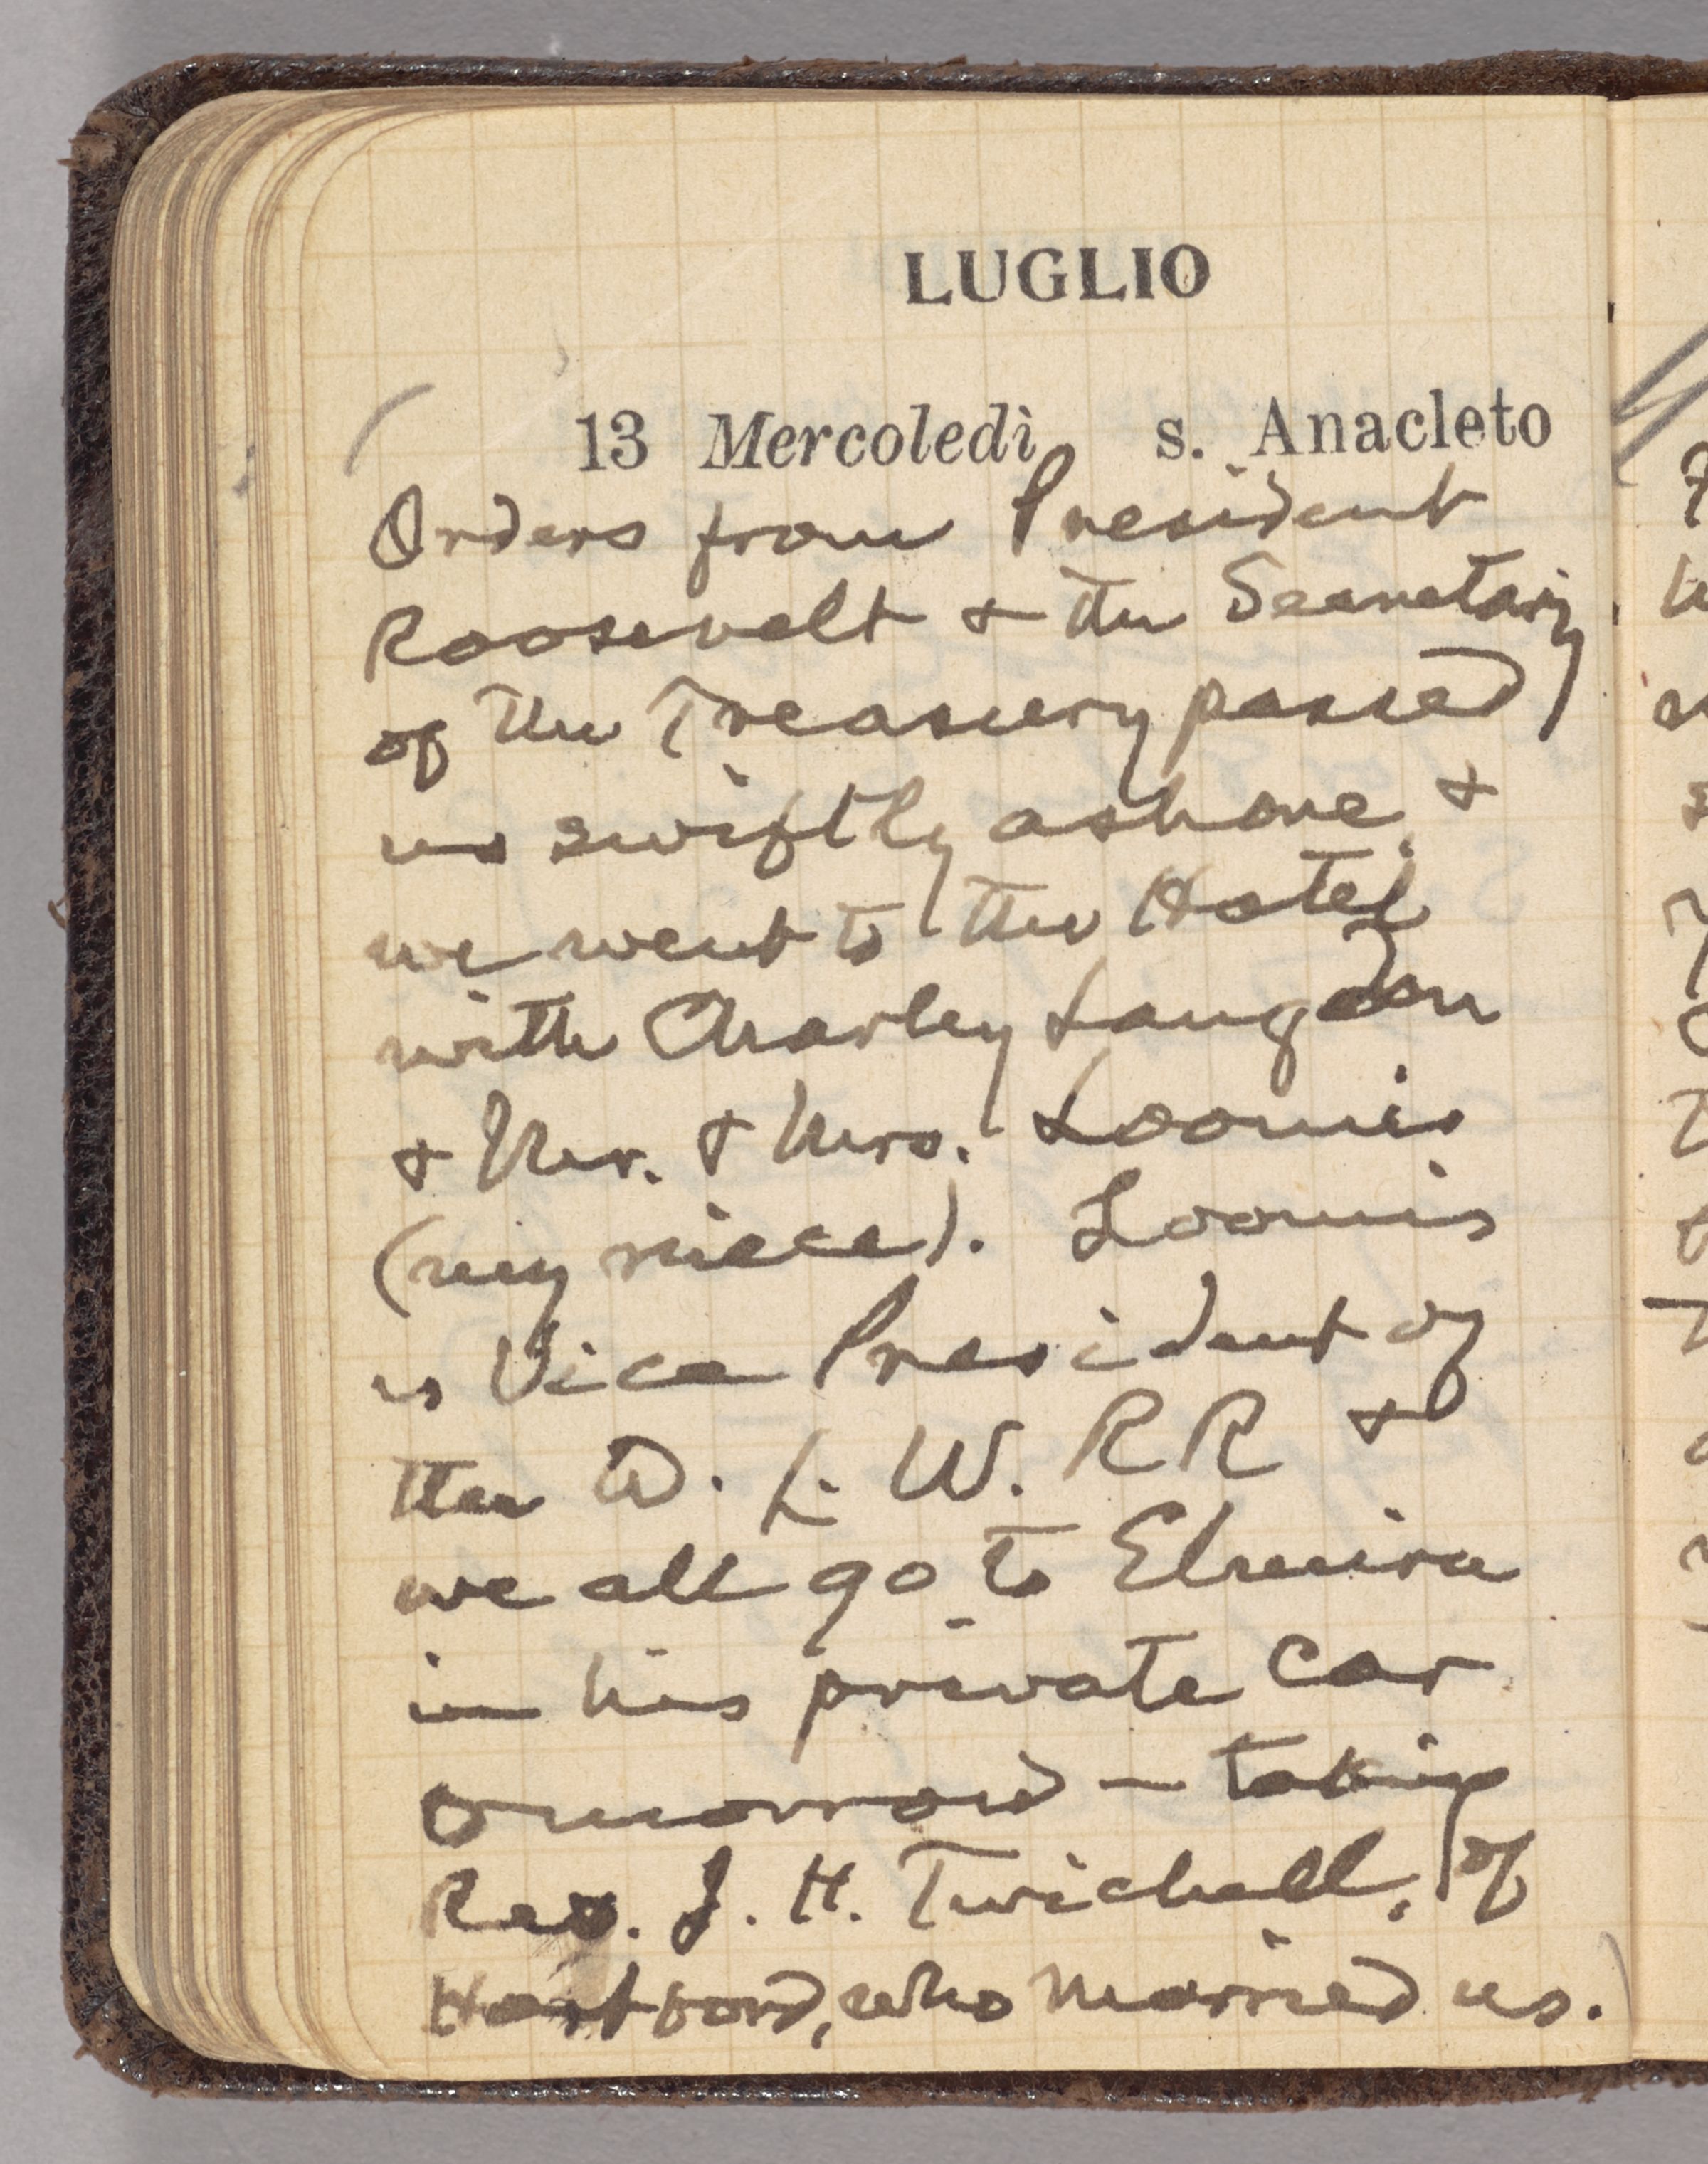 LUGLIO
13 Mercoledì s. Anacleto
Orders from President
Roosevelt & the Secretary
of the Treasury passed
us swiftly ashore, &
we went to the Hotel
with Charley Langdon
& Mr. & Mrs. Loomis
(my niece). Loomis
is Vice President of
the D. L. W. RR &
we all go to Elmira
in his private car
omorrow — taking
Rev. J. H. Twichell, of
Hartford, who married us.